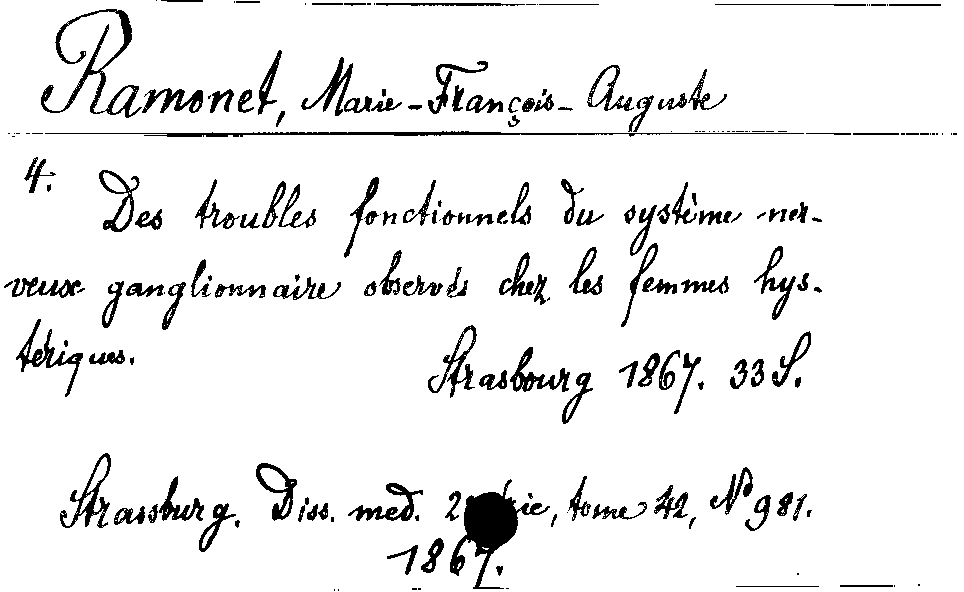 Ramonet, Marie-François-Auguste
4.
Des troubles fonctionnels du système ner-
veux ganglionnaire observés chez les femmes hys-
tériques.
Strasbourg 1867. 33 S.
Strassburg. Diss. med. tome 42, No 981.
1867.